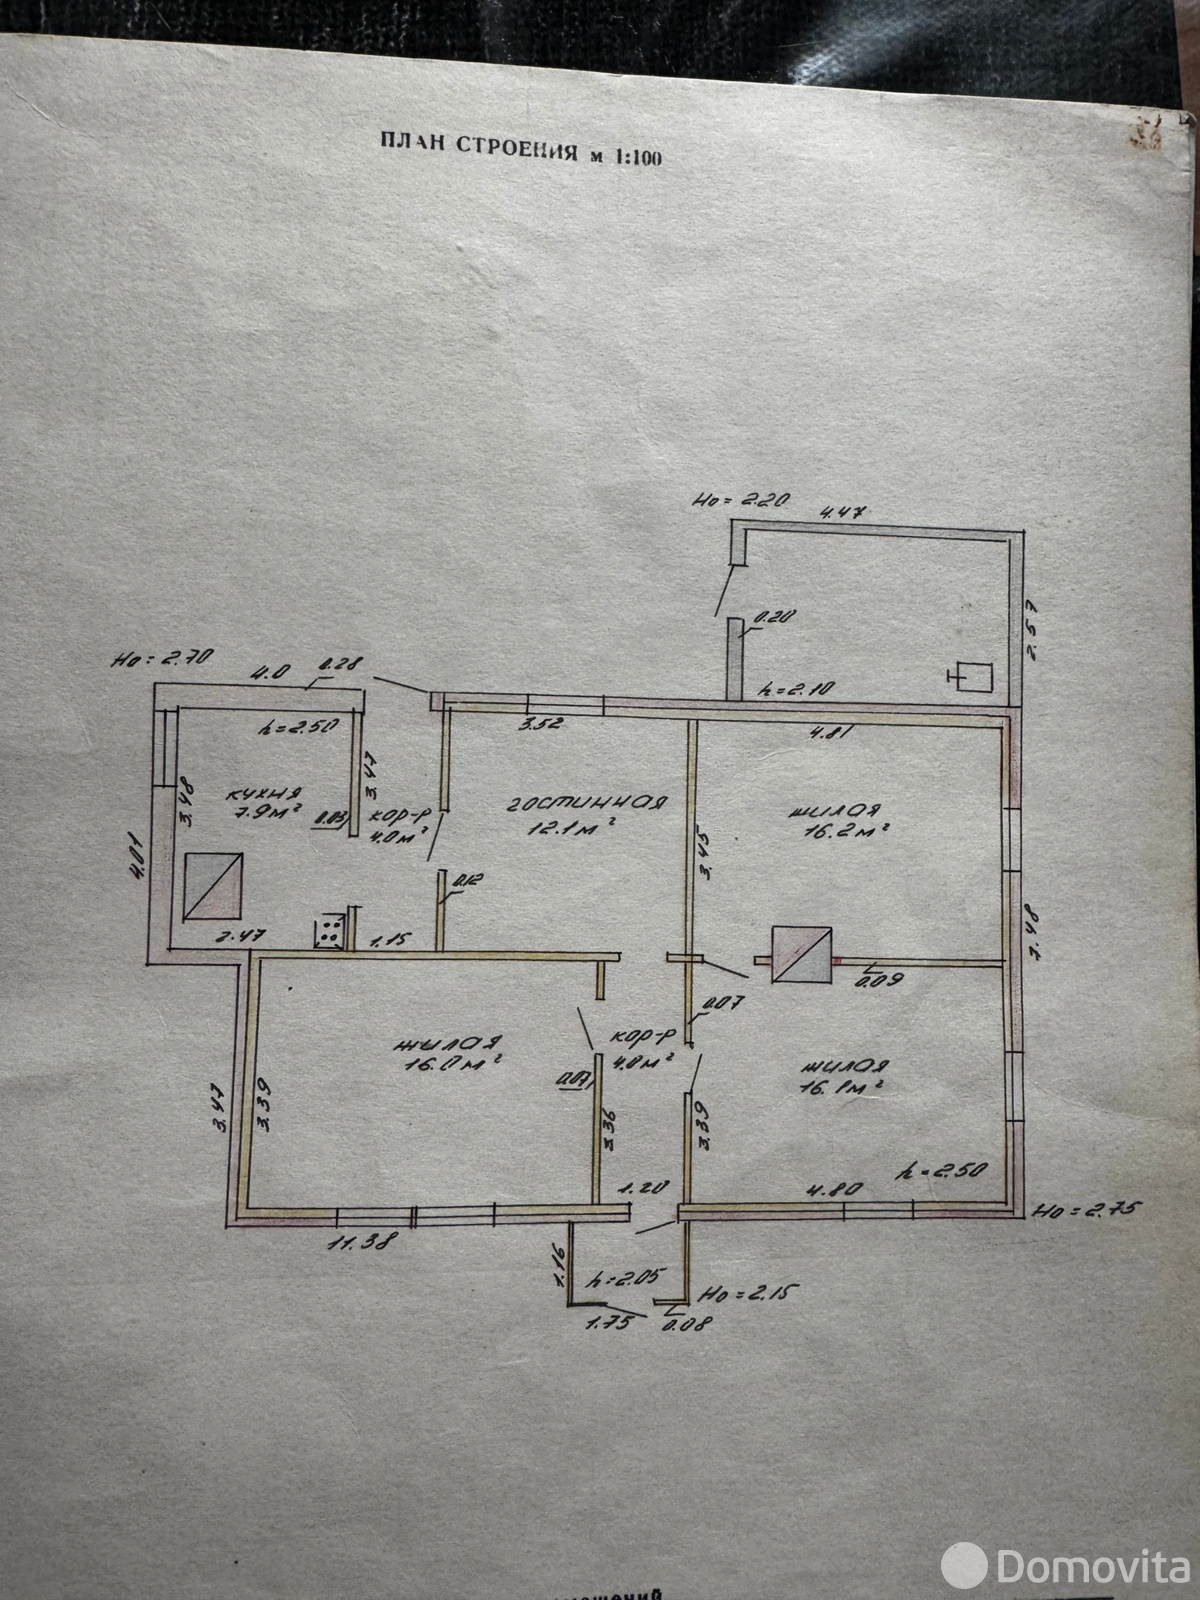 ПЛАН СТРОЕНИЯ м 1:100
Но = 2.20
4.47
2.57
0.20
h = 2.10
Но = 2.70
4.0
0.28
h = 2.50
3.52
4.81
кухня
7.9 м²
3.48
4.01
0.03
3.47
кор-р
4.0 м²
гостинная
12.1 м²
жилая
16.2 м²
3.45
0.12
2.47
1.15
7.48
0.09
0.07
жилая
16.0 м²
кор-р
4.0 м²
жилая
16.1 м²
0.07
3.47
3.39
3.36
3.39
1.20
4.80
h = 2.50
Но = 2.75
11.38
1.16
h = 2.05
Но = 2.15
1.75
0.08
Domovita